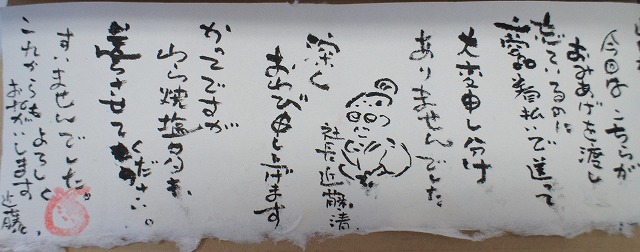 今回は こちらが
おみあげを渡し
だいているのに
着払いで送って
大変申し分け
ありませんでした。
社長 近藤 清
深く
おわび申し上げます
かってですが
焼塩
させてください。
すいませんでした。
これからもよろしく
おねがいします 近藤